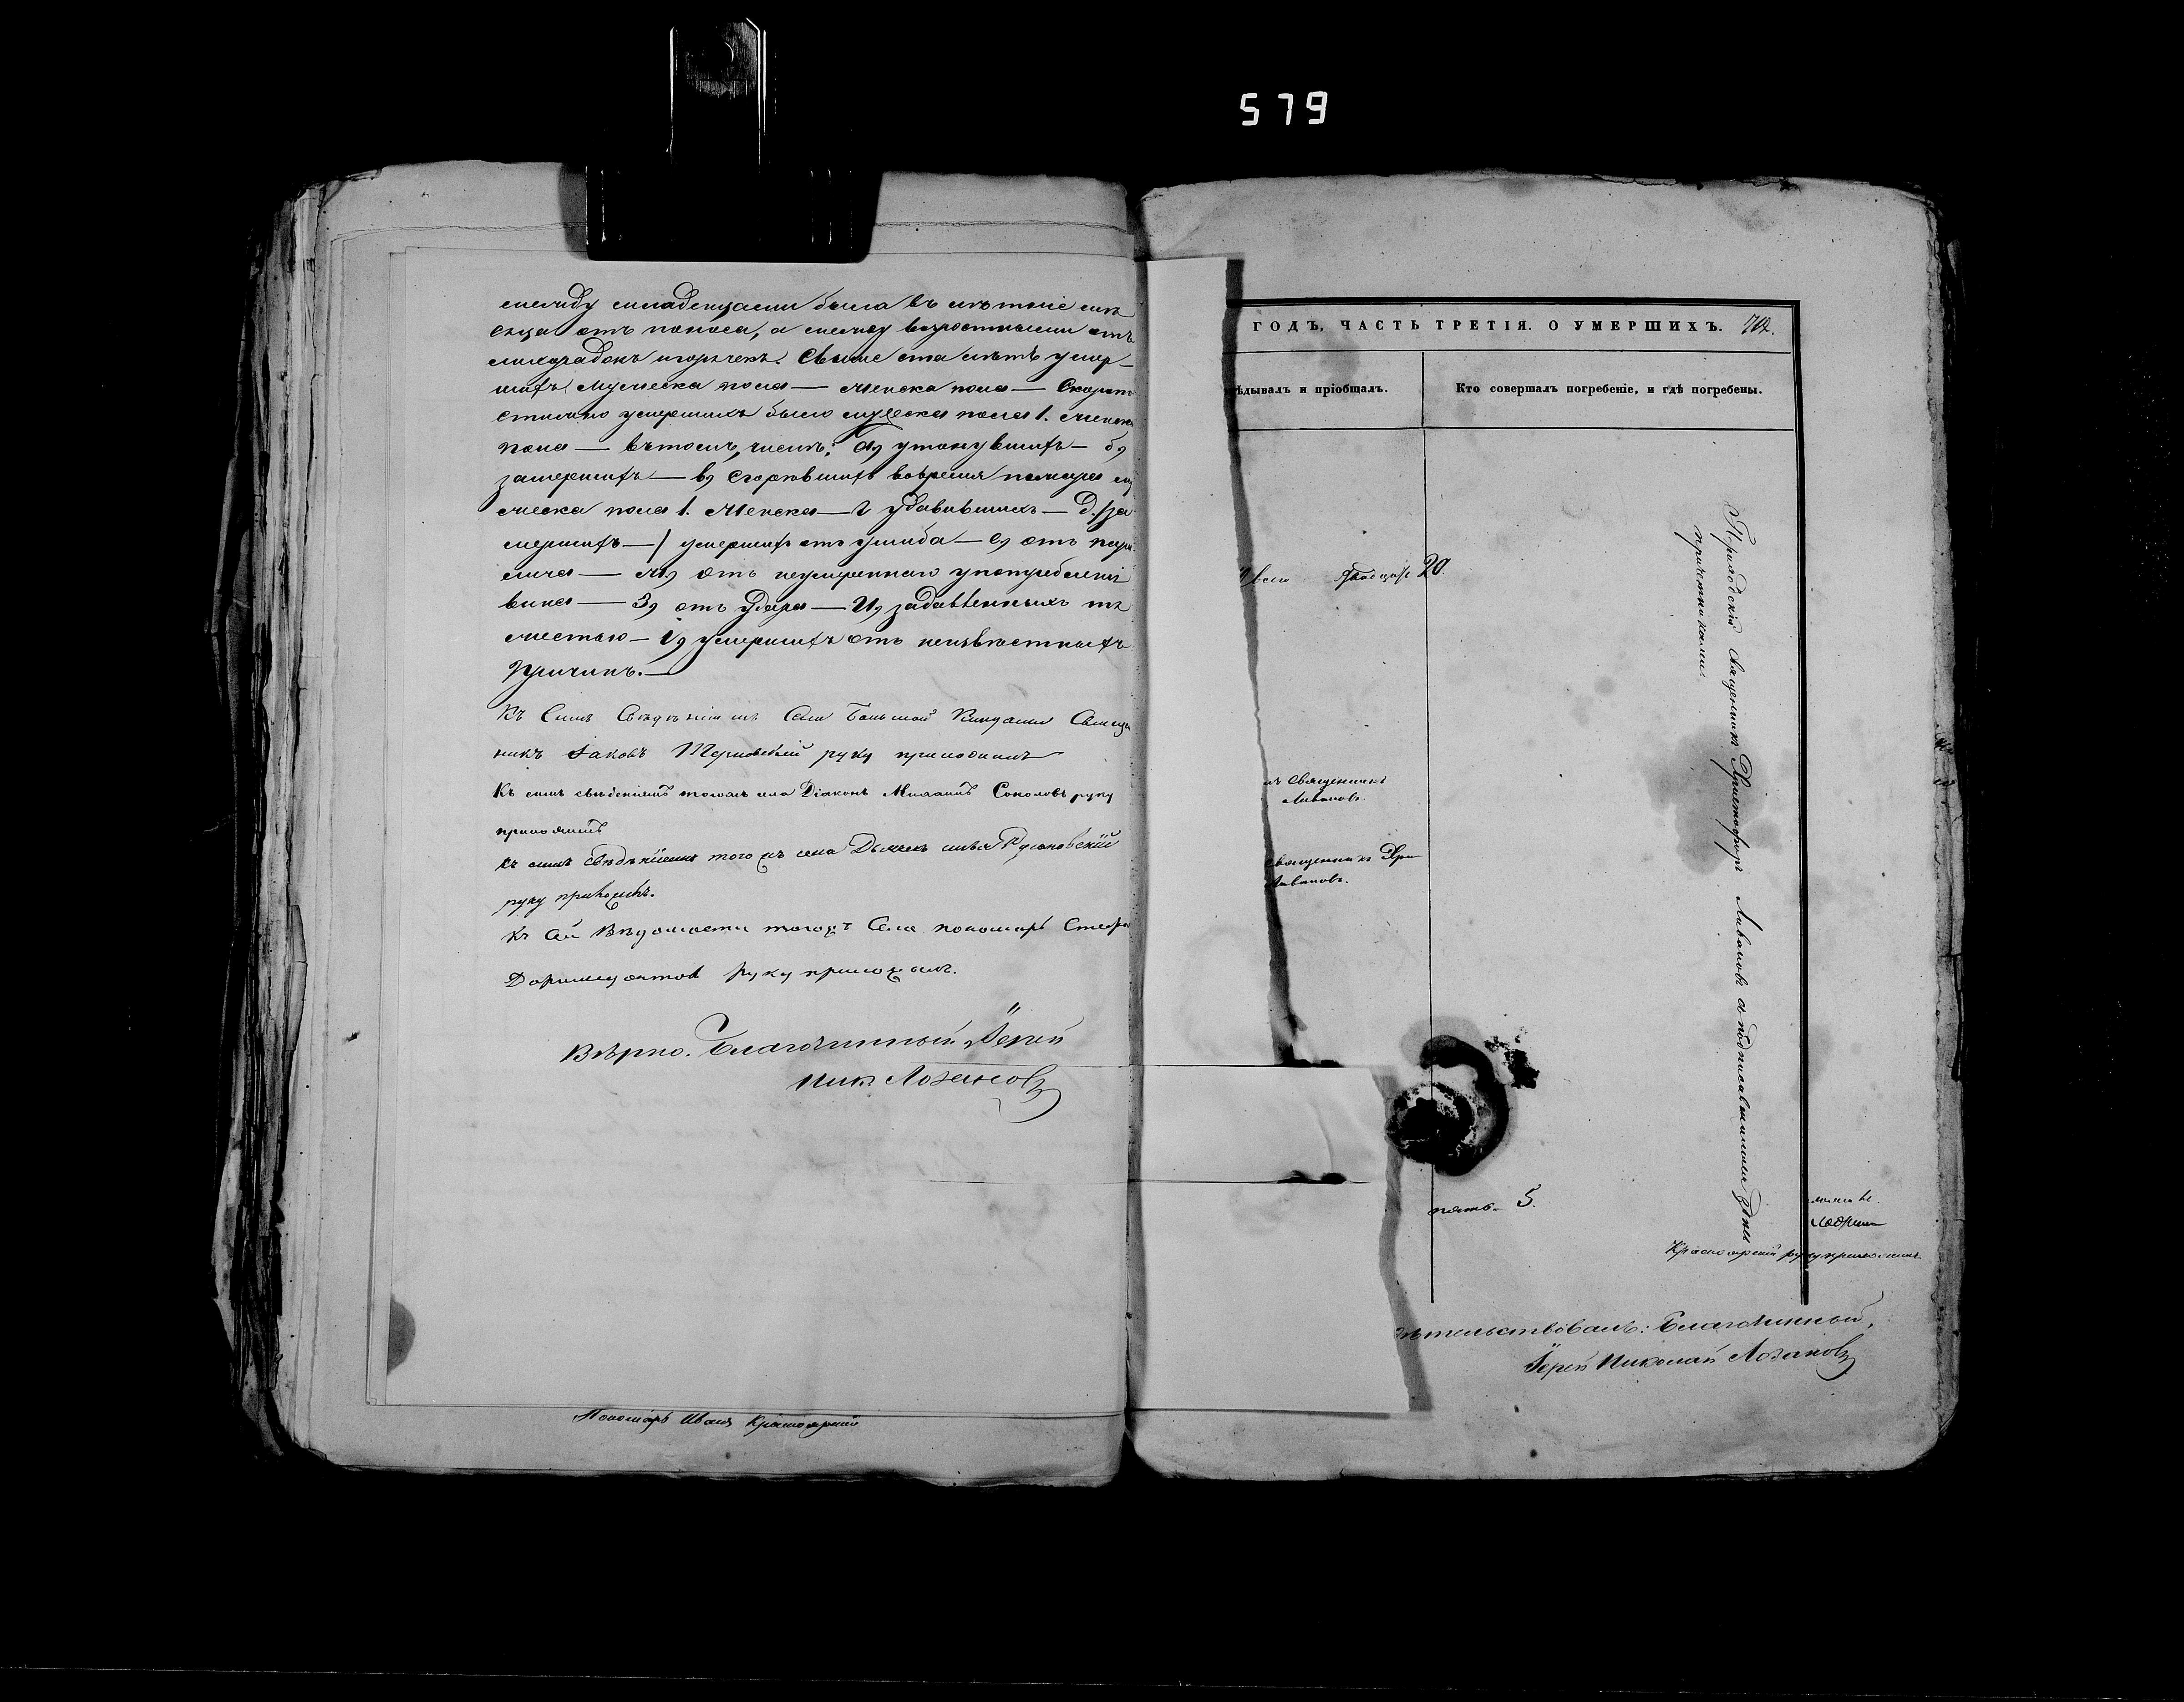 579
между младенцами была въ лѣтніе мѣ
сяца отъ поноса, а между возростными отъ
лихорадокъ и горячекъ. Свыше ста лѣтъ умер-
шихъ мужеска пола — женска пола — Скоропо
стижно умершихъ было мужеска пола 1. женска
пола — въ томъ числѣ: а, утонувшихъ — б,
замерзшихъ — в, сгорѣвшихъ во время пожара му
жеска пола 1. женска — г удавившихъ — д. /за
мерзшихъ —/ умершихъ отъ ушиба — е, отъ пара
лича — ж, отъ неумѣреннаго употребленія
вина — з, отъ удара — и, задавленныхъ тя
жестью — і, умершихъ отъ неизвѣстныхъ
причинъ. —
Къ симъ свѣдѣніямъ села Большой Свящ
никъ Іаковъ Терновскій руку приложилъ
Къ симъ свѣдѣніямъ тогожъ села Діаконъ Соколовъ руку
приложилъ
Къ симъ свѣдѣніямъ того жъ села Дьячекъ
руку приложилъ.
Къ сей Вѣдомости тогожъ Села пономарь Стефа
Доримедонтов руку приложилъ.
Вѣрно. Благочинный Іерей
Ник. Лозановъ
Пономарь Иванъ Красноярскій
ГОДЪ, ЧАСТЬ ТРЕТІЯ. О УМЕРШИХЪ.
ѣдывалъ и пріобщалъ.
Кто совершалъ погребеніе, и гдѣ погребены.
всего двадцать 20.
ъ священникъ
Ливановъ.
священникъ Хри
Ливановъ.
Приходскій священникъ Христофоръ Ливановъ съ подписавшимися
причетниками.
пять — 5.
Красноярскій руку приложилъ
ѣтельствовалъ: Благочинный,
Іерей Николай Лозановъ